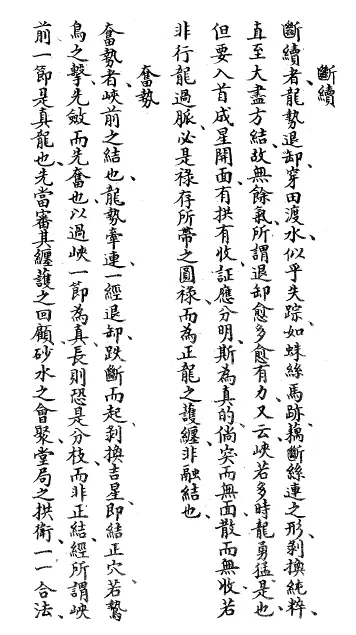 斷續
斷續者龍勢退卸穿田渡水似乎失踪如蛛絲馬跡藕斷絲連之形剝換純粹
直至大盡方結故無餘氣所謂退卸愈多愈有力又云峽若多時龍勇猛是也
但要入首成星開面有拱有收証應分明斯為真的倘突而無面散而無收若
非行龍過脈必是祿存所帶之圓祿而為正龍之護纏非融結也
奮勢
奮勢者峽前之結也龍勢牽連一經退卸跌斷而起剝換吉星即結正穴若鷙
鳥之擊先斂而先奮也以過峽一節為真長則恐是分枝而非正結經所謂峽
前一節是真龍也先當審其纏護之回顧砂水之會聚堂局之拱衛一一合法